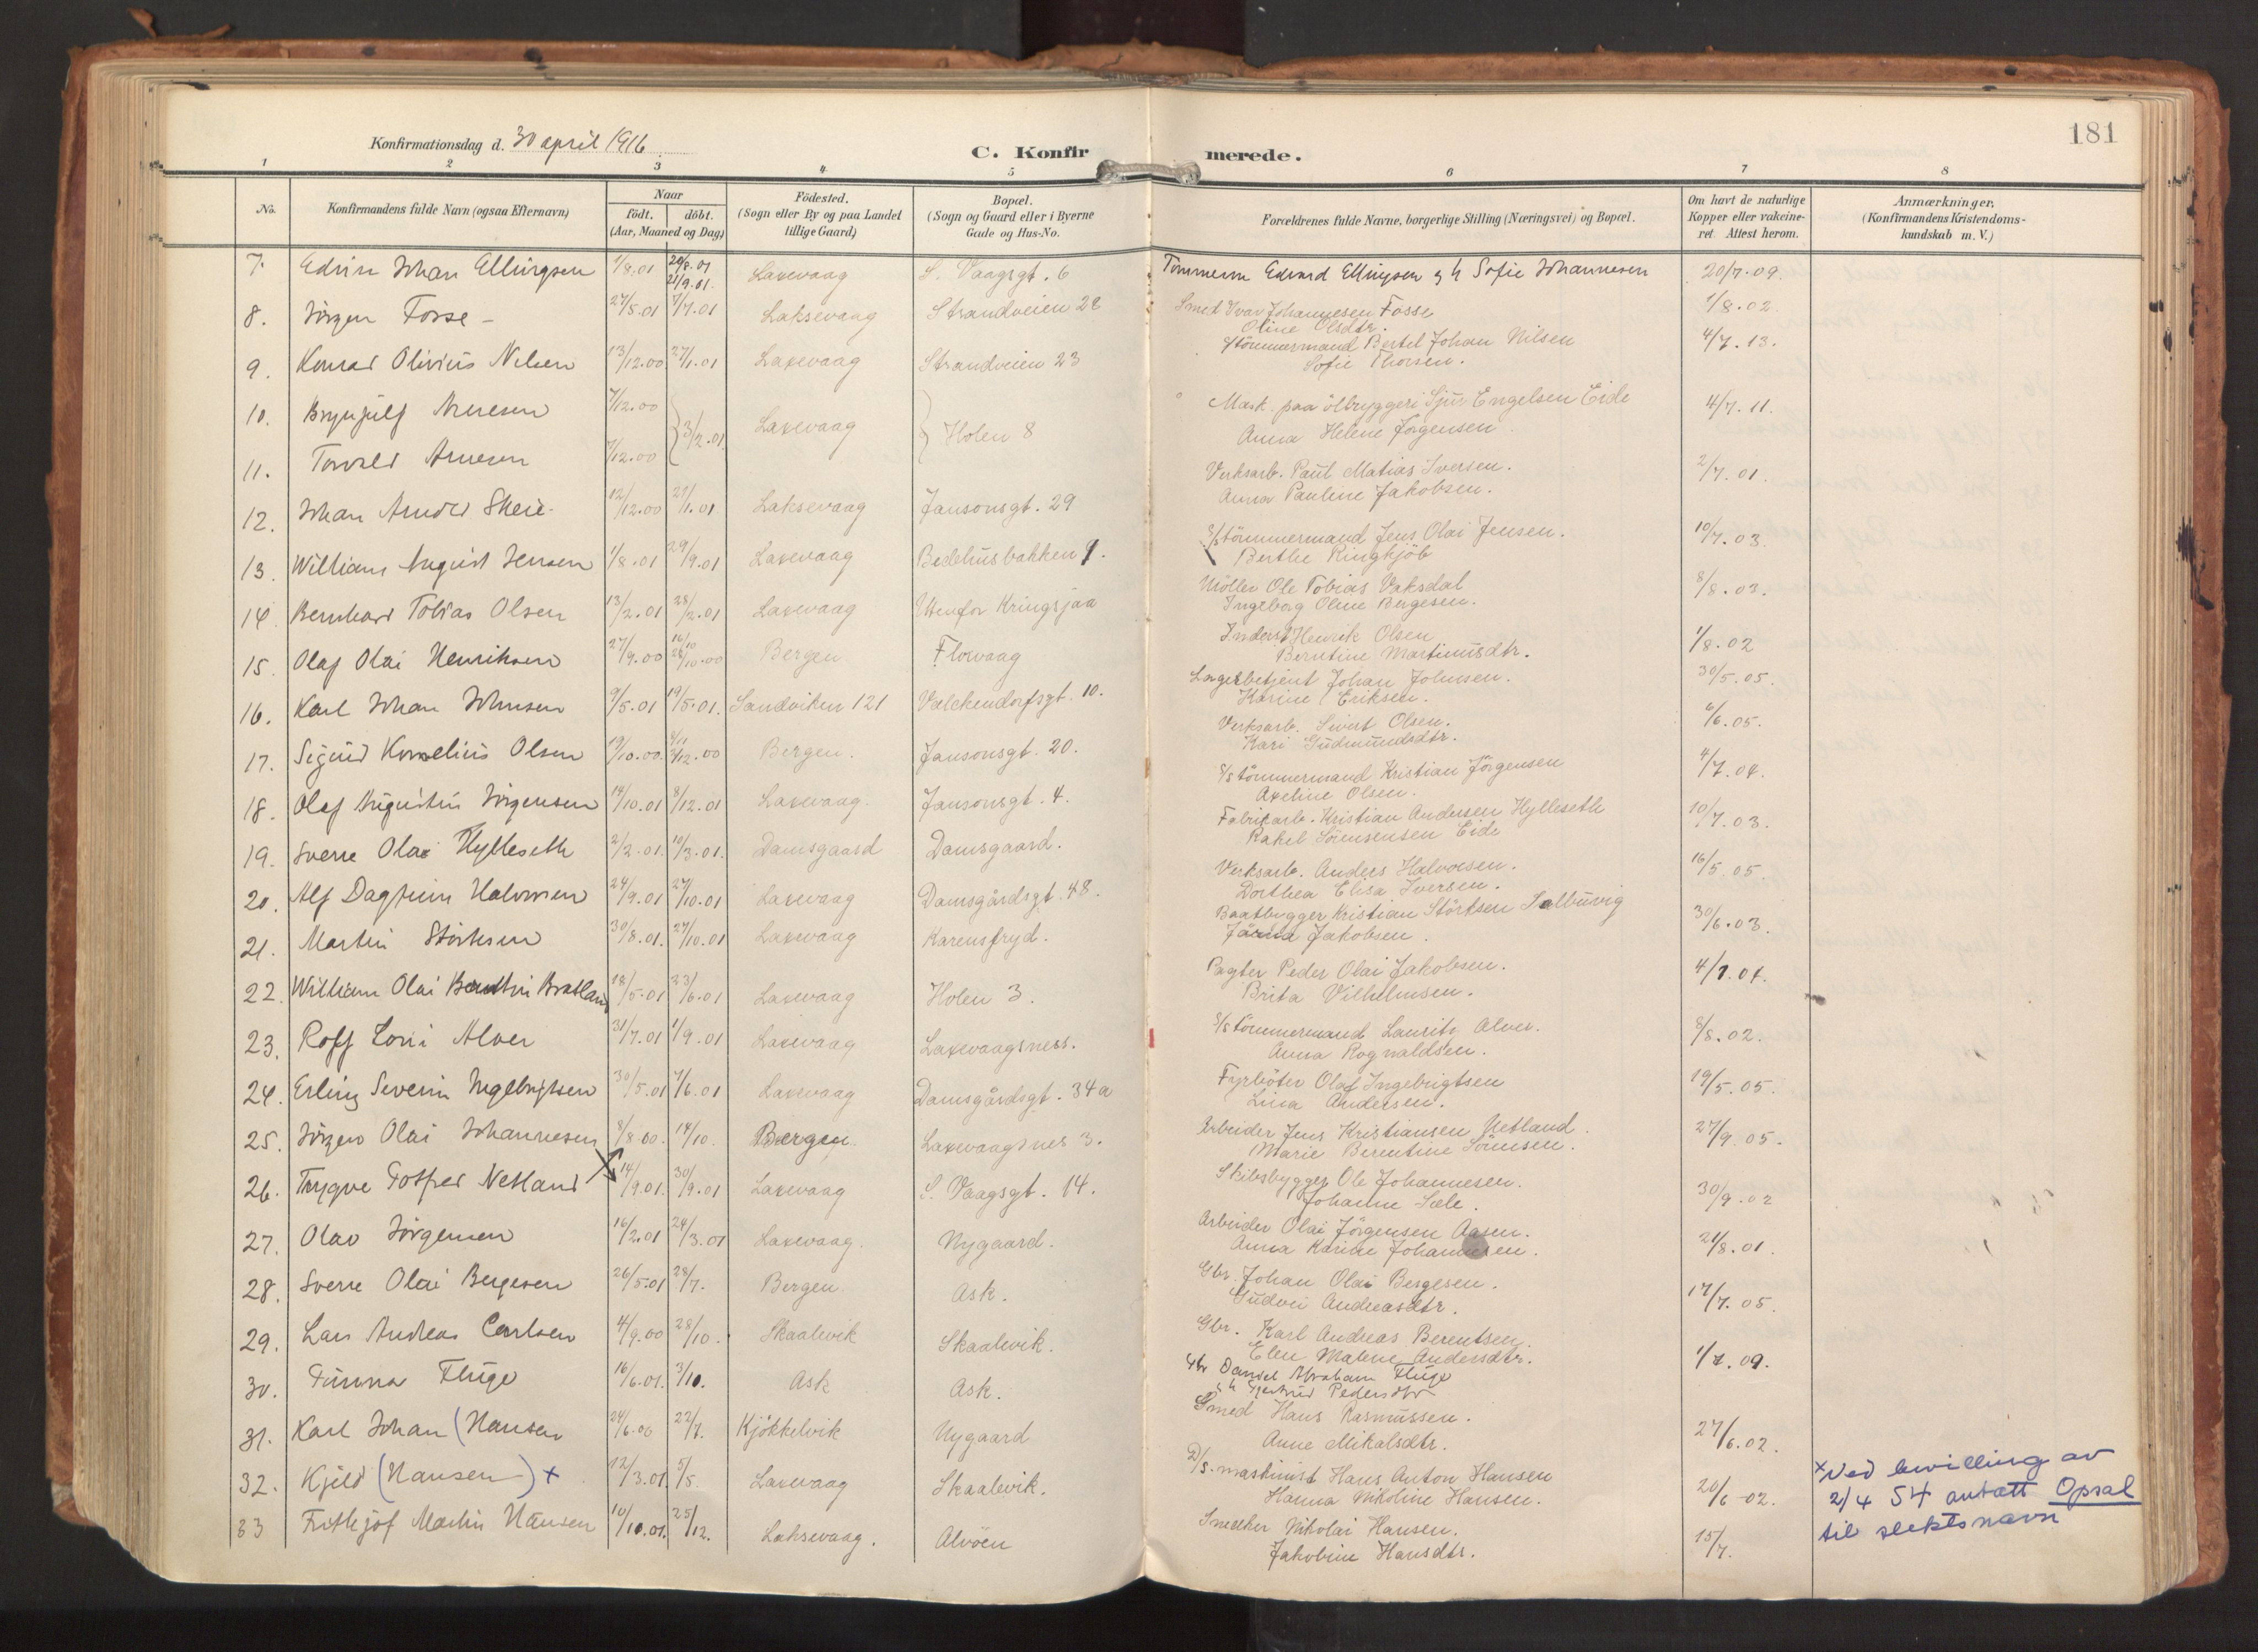 181
Konfirmationsdag d. 30 april 1916.
C. Konfirmerede.
1 2 3 4 5 6 7 8
No. Konfirmandens fulde Navn (ogsaa Efternavn) Naar födt. döbt. (Aar, Maaned og Dag) Födested. (Sogn eller By og paa Landet tillige Gaard) Bopæl. (Sogn og Gaard eller i Byerne Gade og Hus-No. Forældrenes fulde Navne, borgerlige Stilling (Næringsvei) og Bopæl. Om havt de naturlige Kopper eller vakcineret. Attest herom. Anmærkninger. (Konfirmandens Kristendomskundskab m. V.)
7. Edvin Johan Ellingsen 1/8.01 20/8.01 21/9.01. Laxevaag S. Vaagsgt. 6 Tømmerm Edvard Ellingsen og h Sofie Johannesen 20/7.09.
8. Jörgen Fosse - 27/5.01 7/7.01 Laksevaag Strandveien 28 Smed Ivar Johannesen Fosse 1/8.02.
Oline Olsdtr.
9. Konrad Olivius Nilsen 13/12.00 27/1.01 Laxevaag Strandveien 23 S/tömmermand Bertel Johan Nilsen 4/7.13.
Sofie Thorsen.
10. Brynjulf Arnesen 7/12.00 3/2.01 Laxevaag Holen 8 Mask. paa ölbryggeri Sjur Engelsen Eide 4/7.11.
Anna Helene Jörgensen
11. Torvald Arnesen 7/12.00
Verksarb. Paul Matias Iversen. 2/7.01.
Anna Pauline Jakobsen.
12. Johan Arnold Skeie. 12/12.00 27/1.01 Laksevaag Jansonsgt. 29
S/stömmermand Jens Olai Jensen. 10/7.03.
Berthe Ringhjöb
13. William August Jensen 1/8.01 29/9.01 Laxevaag Bedehusbakken 9.
Möller Ole Tobias Vaksdal 8/8.03.
Ingeborg Oline Bergesen.
14. Bernhard Tobias Olsen 13/2.01 28/2.01 Laxevaag Utenfor Kringsjaa
Inderst Henrik Olsen 1/8.02
Berntine Martinusdtr.
15. Olaf Olai Henriksen 27/9.00 16/10 26/10.00 Bergen Florvaag
Lagerbetjent Johan Johnsen. 30/5.05.
Karine Eriksen.
16. Karl Johan Johnsen 9/5.01 19/5.01. Sandviken 121 Valckendorfsgt. 10.
Verksarb. Sivert Olsen. 6/6.05.
Kari Gudmundsdtr.
17. Sigurd Kornelius Olsen 19/10.00. 3/12.00 Bergen. Jansonsgt. 20.
S/s tömmermand Kristian Jörgensen 4/7.04.
Axeline Olsen.
18. Olaf Augustin Jörgensen 14/10.01 8/12.01 Laxevaag. Jansonsgt. 4.
Fabrikarb. Kristian Andersen Hylleseth 10/7.03.
Rakel Sörensensen Eide
19. Sverre Olai Hylleseth 2/2.01. 10/3.01. Damsgaard Damsgaard.
Verksarb. Anders Halvorsen. 16/5.05.
Dorthea Elisa Iversen.
20. Alf Dagfinn Halvorsen 24/9.01 27/10.01 Laxevaag Damsgårdsgt. 48.
Baatbygger Kristian Störksen Salbuvig 30/6.03.
Jakobsen.
21. Martin Störksen 30/8.01. 27/10.01 Laxevaag Karensfryd.
Pagter Peder Olai Jakobsen. 4/7.04.
Brita Vilhelmsen.
22. William Olai Bratland 18/5.01 23/6.01 Laxevaag Holen 3.
S/s tömmermand Laurits Alver. 8/8.02.
Anna Rognaldsen.
23. Rolf Loui Alver 31/7.01 1/9.01 Laxevaag Laxevaagsness.
Fyrböter Olaf Ingebrigtsen 19/5.05.
Lina Andersen.
24. Erling Severin Ingebrigtsen 30/5.01 7/6.01 Laxevaag Damsgårdsgt. 34a
Arbeider Jens Kristiansen Netland. 27/9.05.
Marie Berentine Sörensen.
25. Jörgen Olai Johannesen 8/8.00. 14/10. Bergen Laxevaagsnes 3.
Skibsbygger Ole Johannesen. 30/9.02
Johanne Sæle.
26. Trygve Gotfred Netland 14/9.01. 30/9.01 Laxevaag S. Vaagsgt. 14.
Arbeider Olai Jörgensen Aasen. 21/8.01.
Anna Karine Johannesen.
27. Olav Jörgensen 16/2.01 24/3.01 Laxevaag. Nygaard.
Gbr. Johan Olai Bergesen. 17/7.05.
Gudvei Andreasdtr.
28. Sverre Olai Bergesen 26/5.01 28/7. Bergen. Ask.
Gbr. Karl Andreas Berentsen.
Elen Malene Andersdtr. 1/7.09.
29. Lars Andreas Carlsen 4/9.00 28/10. Skaalevik Skaalevik.
Gbr Daniel Abraham Fluge
og h Gjertrud Pedersdtr
30. Gunnar Fluge 16/6.01. 3/10. Ask Ask.
Smed Hans Rasmussen.
Anne Mikalsdtr. 27/6.02.
31. Karl Johan (Hansen 24/6.00 22/7. Kjökkelvik Nygaard
D/s. maskinist Hans Anton Hansen 20/6-02.
Hanna Nikoline Hansen.
32. Kjeld (Hansen) + 12/3.01 5/5. Laxevaag Skaalevik.
x Ved bevilling av
2/4 54 antatt Opsal
til slektsnavn
Smelter Nikolai Hansen. 15/7.
Jakobine Hansdtr.
33 Frithjof Martin Hansen 10/10.01. 25/12. Laksevaag. Alvöen